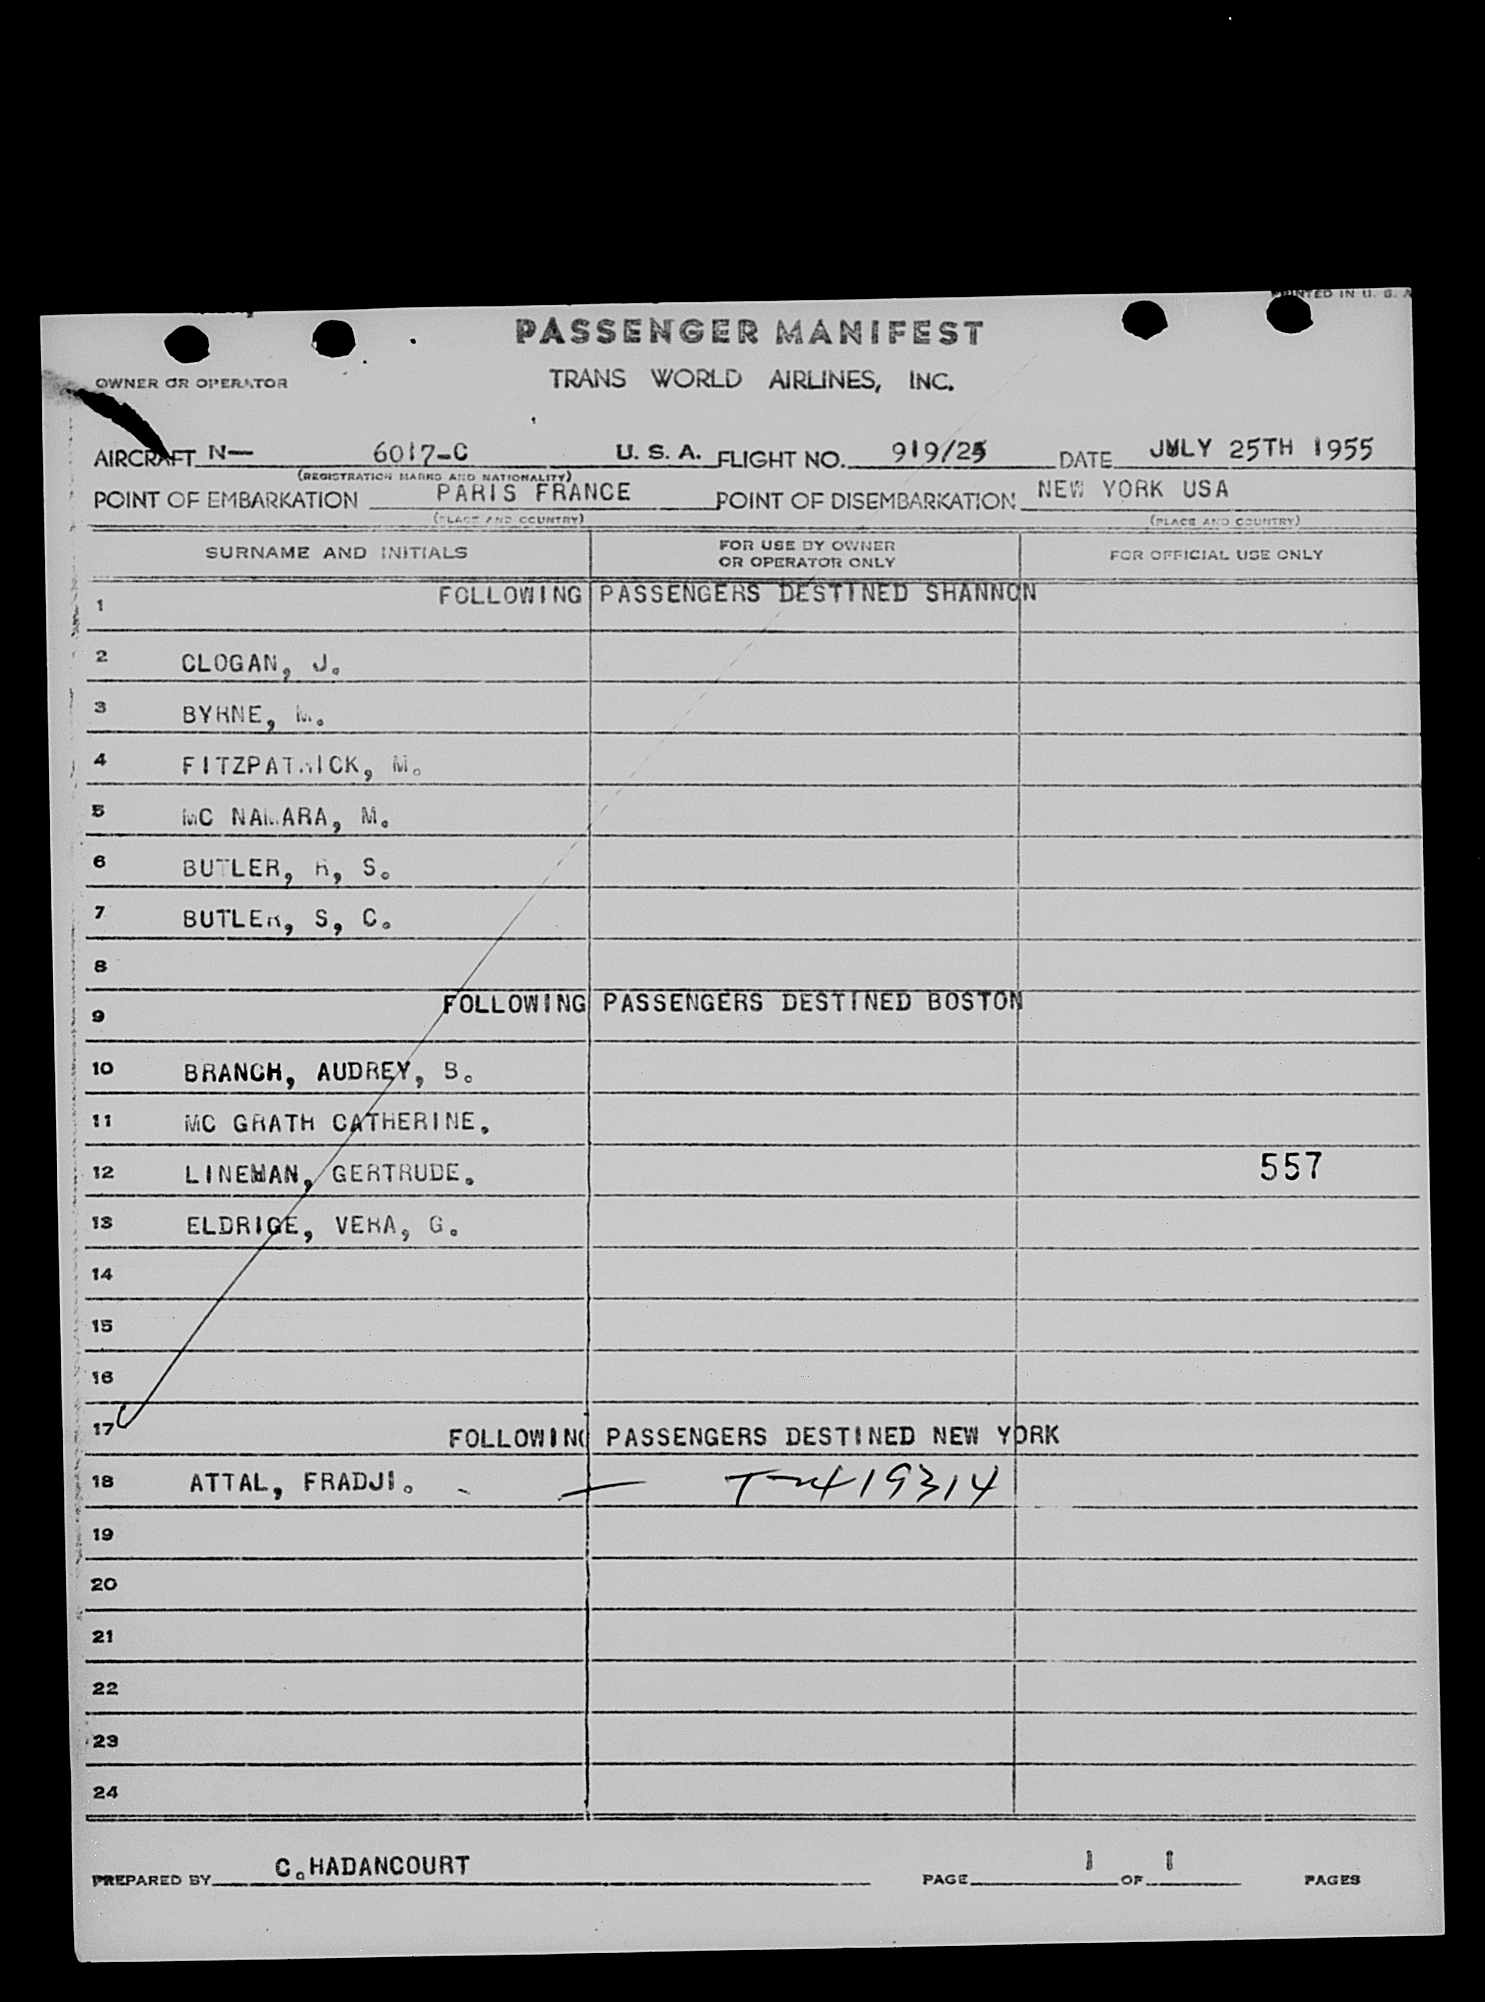 PRINTED IN U. S. A
PASSENGER MANIFEST
OWNER OR OPERATOR TRANS WORLD AIRLINES, INC.
AIRCRAFT N— 6017-C U. S. A. FLIGHT NO. 919/25 DATE JULY 25TH 1955
(REGISTRATION MARKS AND NATIONALITY)
POINT OF EMBARKATION PARIS FRANCE POINT OF DISEMBARKATION NEW YORK USA
(PLACE AND COUNTRY) (PLACE AND COUNTRY)
SURNAME AND INITIALS FOR USE BY OWNER OR OPERATOR ONLY FOR OFFICIAL USE ONLY
1 FOLLOWING PASSENGERS DESTINED SHANNON
2 CLOGAN, J.
3 BYRNE, M.
4 FITZPATRICK, M.
5 MC NAMARA, M.
6 BUTLER, R, S.
7 BUTLER, S, C.
8
9 FOLLOWING PASSENGERS DESTINED BOSTON
10 BRANCH, AUDREY, B.
11 MC GRATH CATHERINE.
12 LINEMAN, GERTRUDE. 557
13 ELDRIGE, VERA, G.
14
15
16
17 FOLLOWING PASSENGERS DESTINED NEW YORK
18 ATTAL, FRADJI. - — 419314
19
20
21
22
23
24
PREPARED BY C.HADANCOURT PAGE 1 OF 1 PAGES